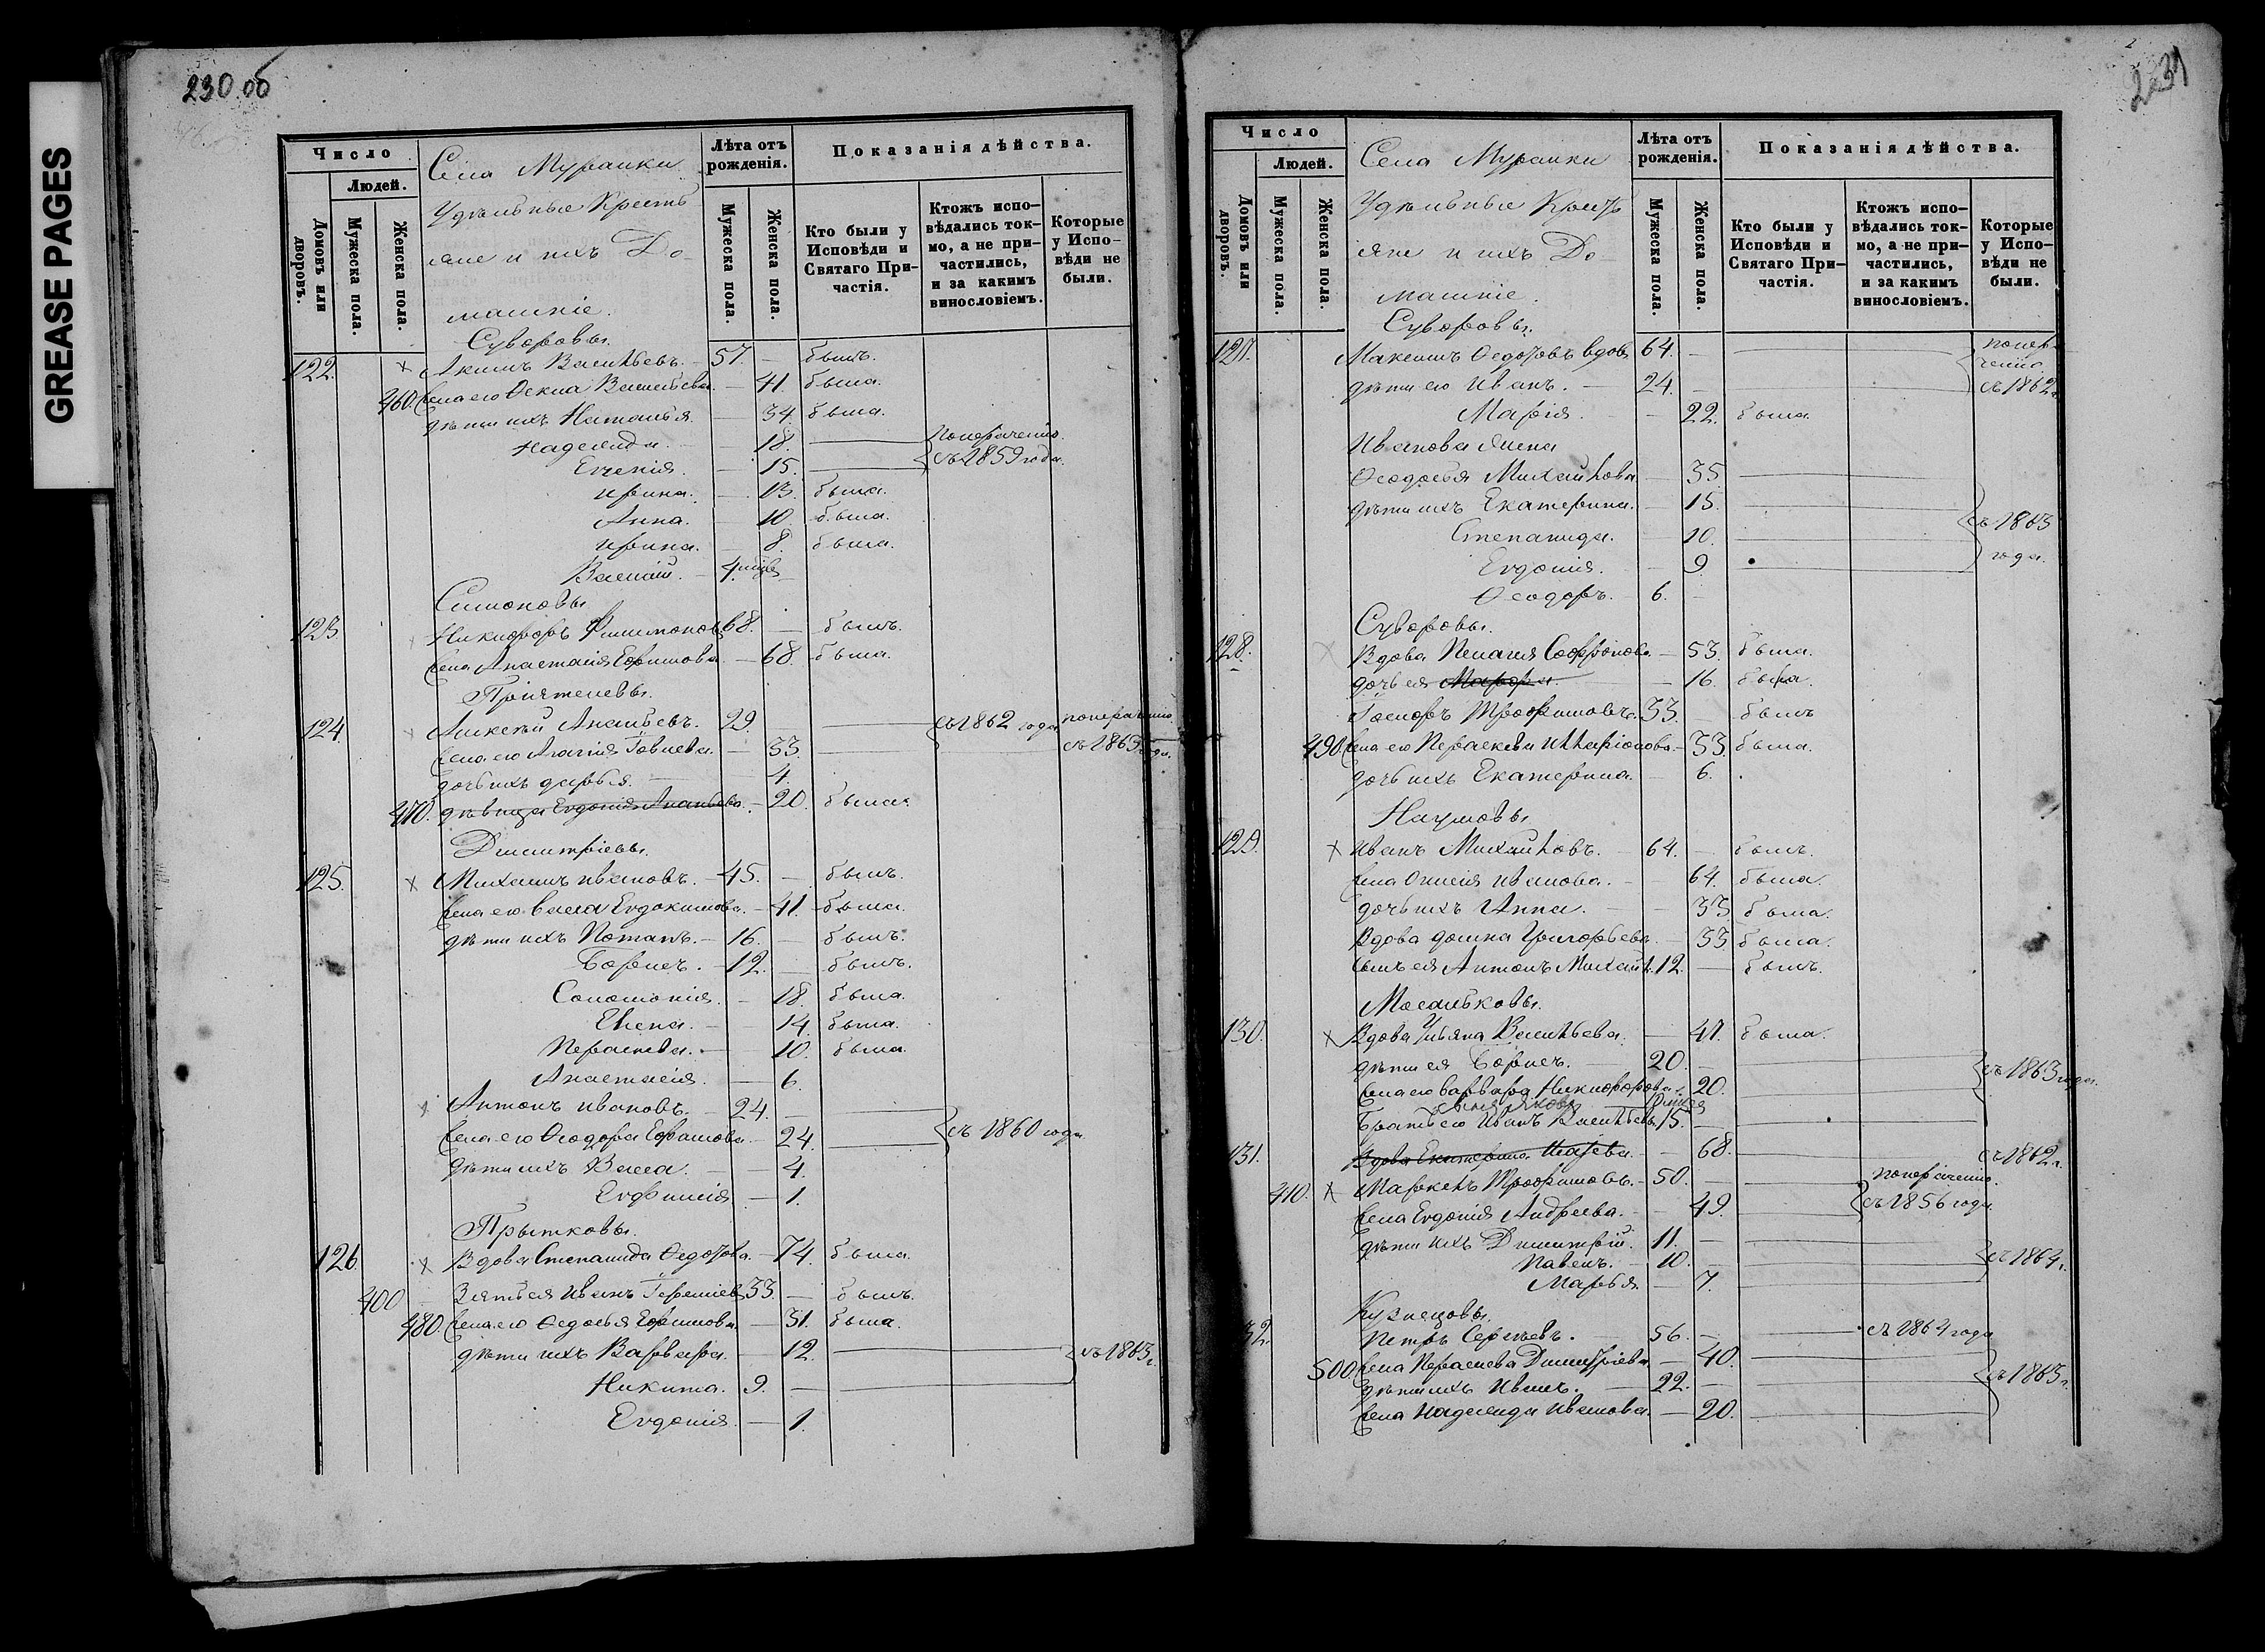 GREASE PAGES
230 об
Число
Людей.
Домовъ или дворовъ.
Мужеска пола.
Женска пола.
Села Муранки
Удѣльные Кресть
яне и ихъ До-
машніе.
Лѣта отъ рожденія.
Мужеска пола.
Женска пола.
Показанія дѣйства.
Кто были у Исповѣди и Святаго При-частія.
Ктожъ испо-вѣдались ток-мо, а не при-частились, и за какимъ винословіемъ.
Которые у Испо-вѣди не были.
Суворовы.
122. Акимъ Васильевъ. 57. — былъ.
460. Жена его Фекла Васильева. — 41. была.
дѣти ихъ Наталья. 34. была.
Надежда. — 18. понераченію
Евгенія. — 15. съ 1859 года.
Ирина. — 13. была.
Анна. — 10. была.
Ирина. — 8. была.
Василій. — 4.
Симоновы.
123 Никифоръ Филимоновъ 68. — былъ.
Жена Анастасія Ефимова. — 68. была.
Пріятелевы.
124 Алексѣй Ананьевъ. 29. съ 1862 года понераченію
Жена его Агафія — 33. съ 1863 года.
дочь ихъ Дарья. 4.
470. дѣвица Евдокія Ананьева. — 20. была.
Димитріевы.
125. Михаилъ Ивановъ. — 45. — былъ.
Жена его Васса Евдокимова. — 41. была.
дѣти ихъ Потапъ. — 16. — былъ.
Борисъ. — 12. — былъ.
Соломонія. — 18. была.
Елена. — 14. была.
Параскева. — 10. была.
Анастасія. — 6.
Антонъ Ивановъ. — 24. —
Жена его Феодора Ефимова — 24. съ 1860 года
дѣти ихъ Васса. — 4.
Евфимія — 1.
Прытковы.
126 Вдова Степанида Федотова. — 74. была.
400 Зять ея Иванъ 33. — былъ.
480. Жена его Федосья Ефимова. — 31. была.
дѣти ихъ Варвара. — 12. съ 1863 г.
Никита. 9. —
Евдокія. — 1.
231
Число
Людей.
Домовъ или дворовъ.
Мужеска пола.
Женска пола.
Села Муранки
Удѣльные Кресть
яне и ихъ До
машніе.
Лѣта отъ рожденія.
Мужеска пола.
Женска пола.
Показанія дѣйства.
Кто были у Исповѣди и Святаго При-частія.
Ктожъ испо-вѣдались ток-мо, а не при-частились, и за какимъ винословіемъ.
Которые у Испо-вѣди не были.
Суворовы.
127. Максимъ Федотовъ вдовъ 64. — понера-
ченію
дѣти его Иванъ. — 24. — съ 1862 г.
Марія. — 22. была.
Иванова жена
Феодосья Михайлова — 35
дѣти ихъ Екатерина. — 15.
Степанида. — 10. съ 1863
Евдокія. — 9. года.
Феодоръ. — 6. —
Суворовы.
128. Вдова Пелагея Софронова. — 53. была.
дочь ея Марфа. — 16. была.
Іосифъ Трофимовъ. 33. — былъ
490. Жена его Параскева Илларіонова. — 33. была.
дочь ихъ Екатерина. — 6.
Наумовы
129. Иванъ Михайловъ. — 64. — былъ.
Жена Анисія Иванова. — 64. была.
дочь ихъ Анна. — 33. была.
Вдова Домна Григорьева. — 33. была.
сынъ ея Антонъ Михайл. 12. — былъ.
Мосальковы.
130. Вдова Ульяна Васильева. — 47. была.
дѣти ея Борисъ. — 20. —
Жена его Варвара Никифорова. 20. съ 1863 года.
Братъ его Иванъ Васильевъ 15. —
131. Вдова Екатерина — 68. съ 1862 г.
410. Маркелъ Трофимовъ. — 50. — понераченію.
Жена Евдокія Андреева. — 49. съ 1856 года
дѣти ихъ Димитрій. 11. —
Павелъ. — 10. — съ 1864 г.
Марья. — 7.
Кузнецовы.
32. Петръ Сергѣевъ. — 56. — съ 1864 года
500. Жена Параскева Димитріева. — 40.
дѣти ихъ Иванъ. — 22. — съ 1863 г.
Жена Надежда Иванова. — 20.